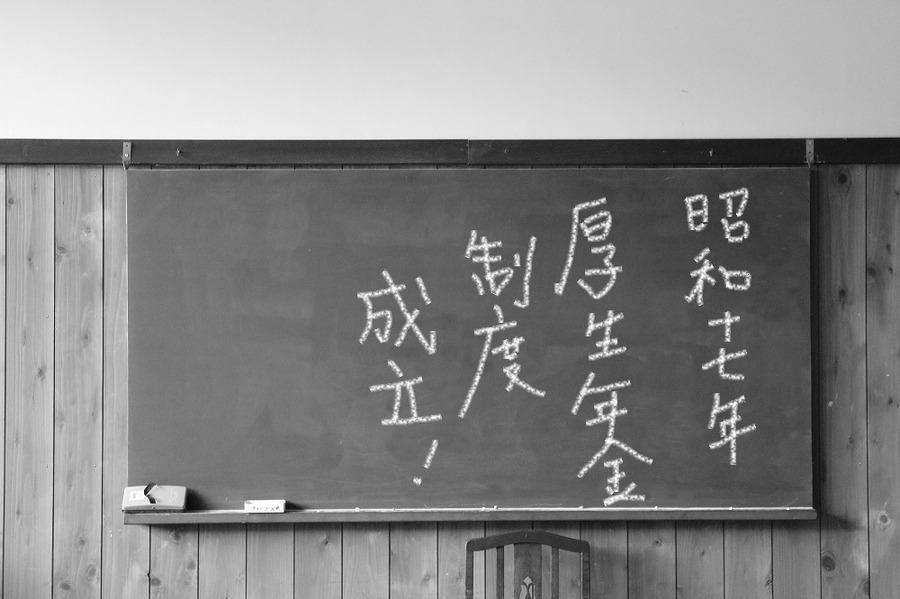 昭和十七年
厚生年金
制度
成立!